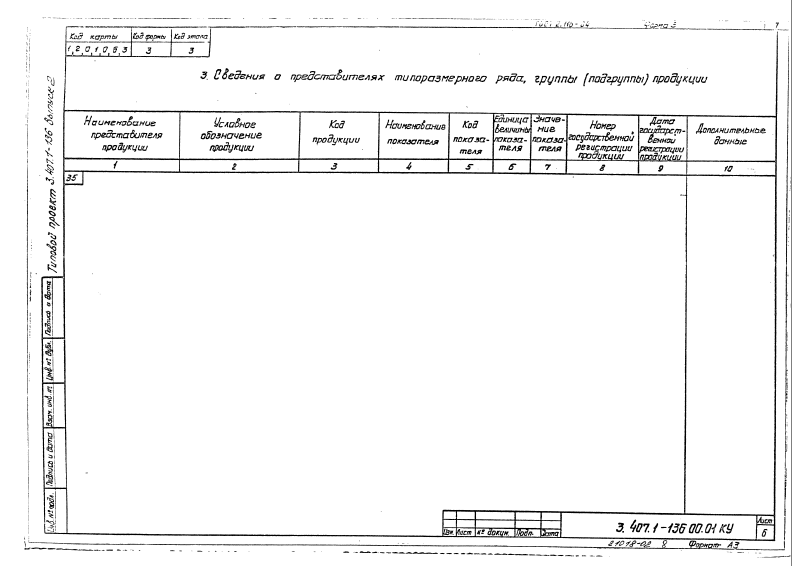 ГОСТ 2.116-84 Форма 3 7
Код карты Код формы Код этапа
1,2,0,1,0,6,3 3 3
3. Сведения о представителях типоразмерного ряда, группы (подгруппы) продукции
Наименование представителя продукции
Условное обозначение продукции
Код продукции
Наименование показателя
Код показа-теля
Единица величины показа-теля
Значе-ние показа-теля
Номер государственной регистрации продукции
Дата государст-венной регистрации продукции
Дополнительные данные
1 2 3 4 5 6 7 8 9 10
35
Типовой проект 3.407.1-136 Выпуск 2
Подпись и дата
Инв. № дубл.
Взам. инв. №
Подпись и дата
Инв. № подл.
Изм. Лист № докум. Подп. Дата
3.407.1-136 00.01 КУ
Лист
6
21018-02 8 Формат А3